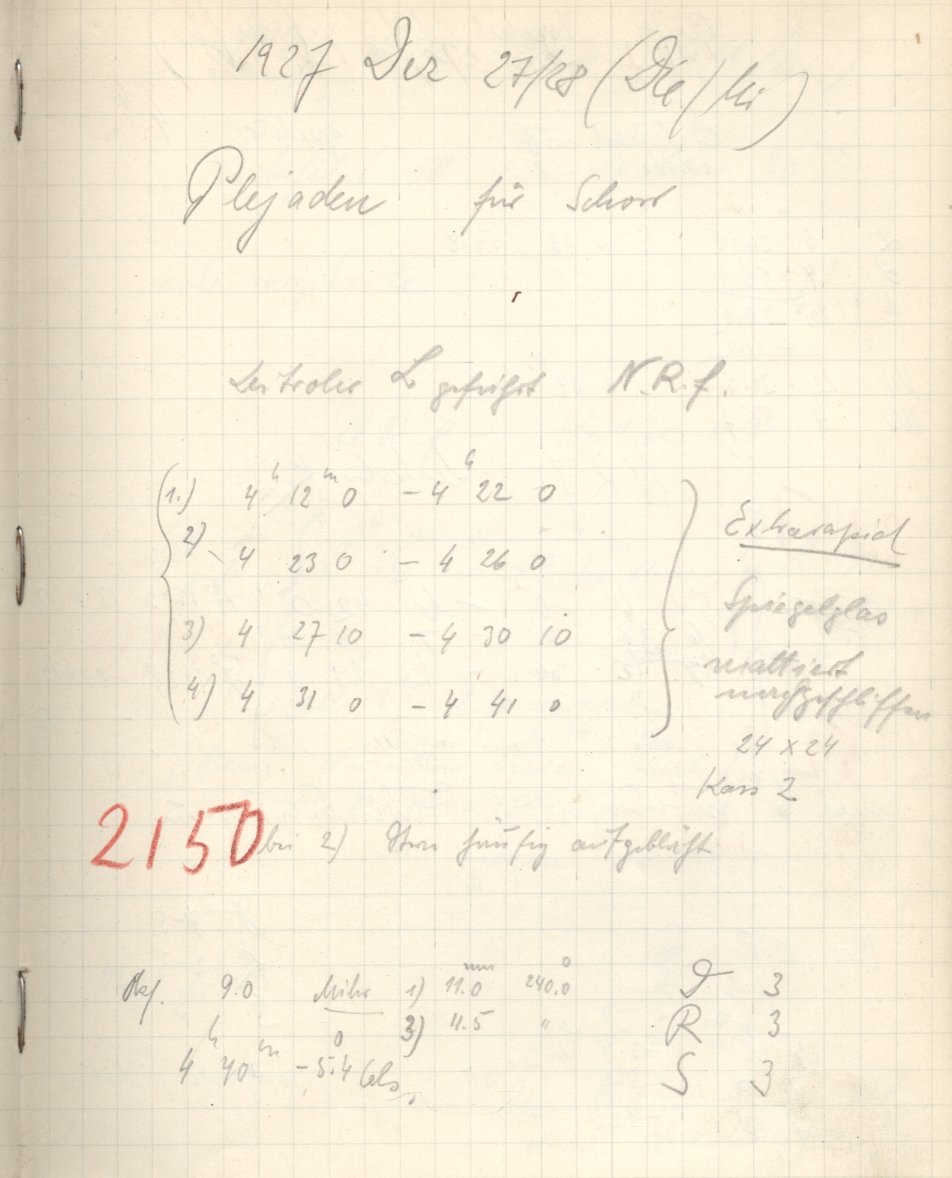 1927 Dez 27/28 (Die/Mi)
Plejaden für Schorr
Leitrohr L geführt N.R.f.
1.) 4h 12m 0 - 4h 22 0
2) 4 23 0 - 4 26 0
3) 4 27 10 - 4 30 10
4) 4 31 0 - 4 41 0
Extrarapid
Spiegelglas
mattiert
nachgeschliffen
24 x 24
Kass 2
2150
bei 2) Stern häufig aufgebläht
9.0 Mikr 1) 11.0mm 240.0°
3) 11.5 "
4h 40m -5.4° Cels.
D 3
R 3
S 3